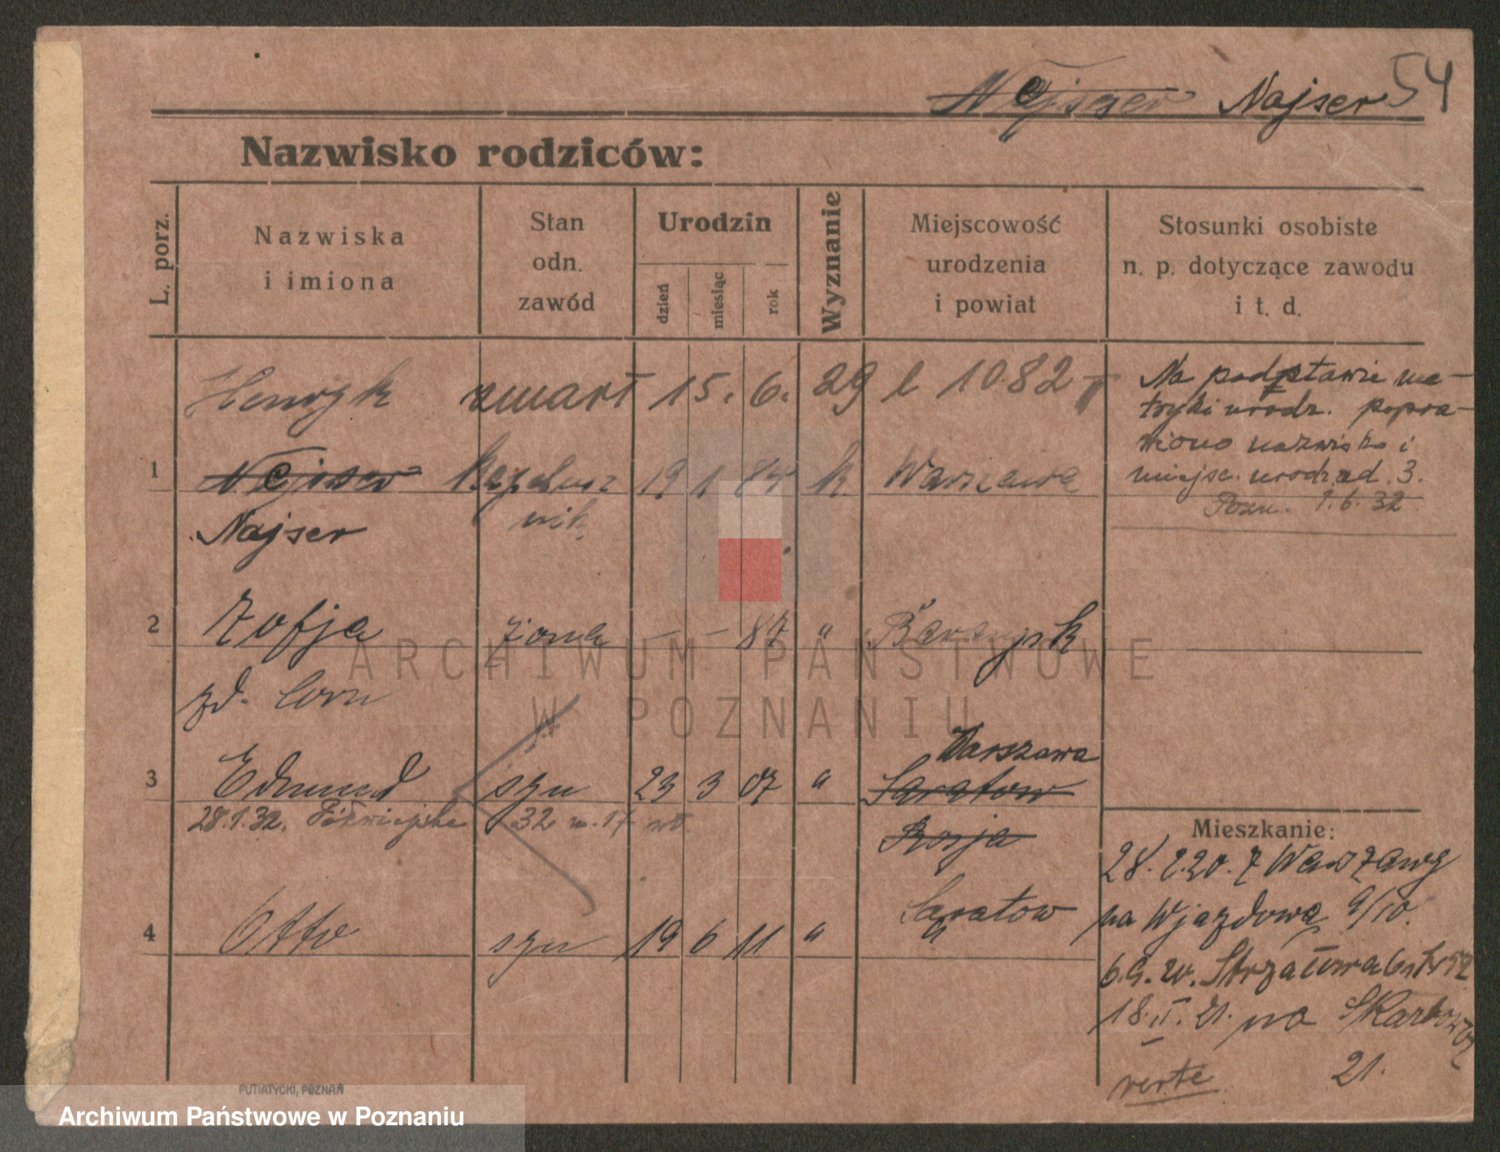 Nejser Najser 54
Nazwisko rodziców:
L. porz.
Nazwiska
i imiona
Stan
odn.
zawód
Urodzin
dzień
miesiąc
rok
Wyznanie
Miejscowość
urodzenia
i powiat
Stosunki osobiste
n. p. dotyczące zawodu
i t. d.
Henryk zmarł 15. 6. 29 l 1082
1 Nejser Kapelusz 19 1 85 k. Warszawa
nik
Najser
Na podstawie me-
tryki urodz. popra-
wiono nazwisko i
miejsc. urodz. ad. 3.
Pozn. 1.6.32
2 Zofja żona — — 87 "
zd. Corn
Warszawa
3 Edmund syn 23 3 07 " Saratow
28.1.32. Półwiejska 32 m. 17
Rosja
4 Otto syn 19 6 11 " Saratow
Mieszkanie:
28. 2.20. z Warszawy
na Wjazdową 9/10.
6.9.20. Strzałowa
18.II.21. na Skarbową
21.
verte
PUTIATYCKI, POZNAŃ
ARCHIWUM PAŃSTWOWE
W POZNANIU
Archiwum Państwowe w Poznaniu